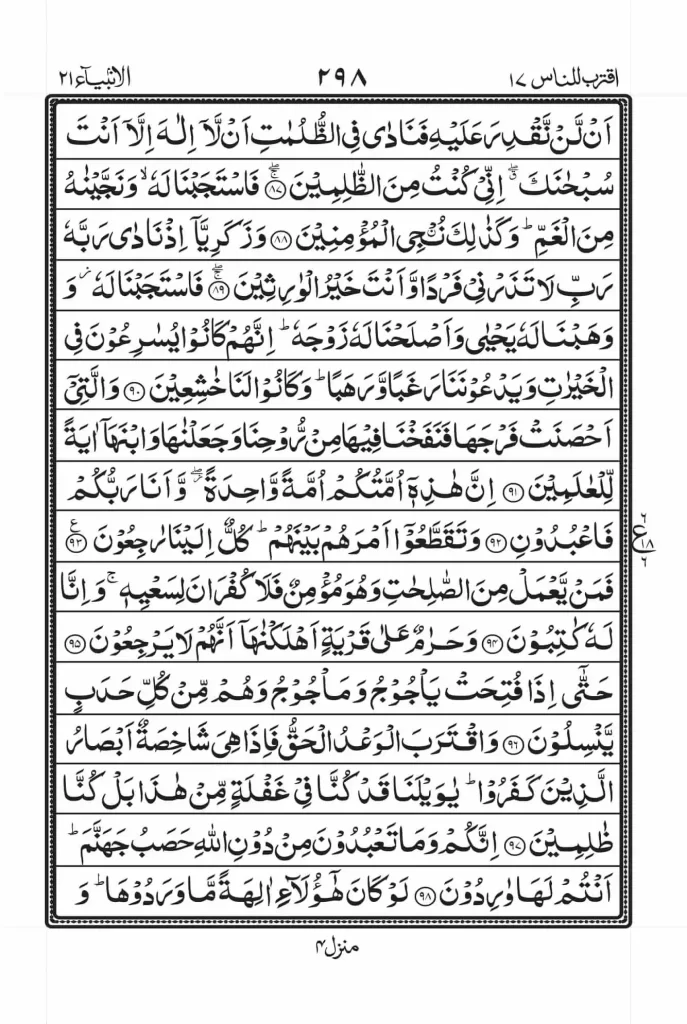 اقترب للناس ١٧
٢٩٨
الانبیآء ٢١
اَنْ لَّنْ نَّقْدِرَ عَلَیْهِ فَنَادٰى فِی الظُّلُمٰتِ اَنْ لَّاۤ اِلٰهَ اِلَّاۤ اَنْتَ
سُبْحٰنَكَ ۖۗ اِنِّیْ كُنْتُ مِنَ الظّٰلِمِیْنَ ۚۖ﴿٨٧﴾ فَاسْتَجَبْنَا لَهٗ ۙ وَ نَجَّیْنٰهُ
مِنَ الْغَمِّ ؕ وَ كَذٰلِكَ نُـْۨجِی الْمُؤْمِنِیْنَ ﴿٨٨﴾ وَ زَكَرِیَّاۤ اِذْ نَادٰى رَبَّهٗ
رَبِّ لَا تَذَرْنِیْ فَرْدًا وَّ اَنْتَ خَیْرُ الْوٰرِثِیْنَ ۚۖ﴿٨٩﴾ فَاسْتَجَبْنَا لَهٗ ؗ وَ
وَهَبْنَا لَهٗ یَحْیٰى وَ اَصْلَحْنَا لَهٗ زَوْجَهٗ ؕ اِنَّهُمْ كَانُوْا یُسٰرِعُوْنَ فِی
الْخَیْرٰتِ وَ یَدْعُوْنَنَا رَغَبًا وَّ رَهَبًا ؕ وَ كَانُوْا لَنَا خٰشِعِیْنَ ﴿٩٠﴾ وَ الَّتِیْۤ
اَحْصَنَتْ فَرْجَهَا فَنَفَخْنَا فِیْهَا مِنْ رُّوْحِنَا وَ جَعَلْنٰهَا وَ ابْنَهَاۤ اٰیَةً
لِّلْعٰلَمِیْنَ ﴿٩١﴾ اِنَّ هٰذِهٖۤ اُمَّتُكُمْ اُمَّةً وَّاحِدَةً ۖؗ وَّ اَنَا رَبُّكُمْ
فَاعْبُدُوْنِ ﴿٩٢﴾ وَ تَقَطَّعُوْۤا اَمْرَهُمْ بَیْنَهُمْ ؕ كُلٌّ اِلَیْنَا رٰجِعُوْنَ ﴿٩٣﴾ ع
فَمَنْ یَّعْمَلْ مِنَ الصّٰلِحٰتِ وَ هُوَ مُؤْمِنٌ فَلَا كُفْرَانَ لِسَعْیِهٖ ۚ وَ اِنَّا
لَهٗ كٰتِبُوْنَ ﴿٩٤﴾ وَ حَرٰمٌ عَلٰى قَرْیَةٍ اَهْلَكْنٰهَاۤ اَنَّهُمْ لَا یَرْجِعُوْنَ ﴿٩٥﴾
حَتّٰۤى اِذَا فُتِحَتْ یَاْجُوْجُ وَ مَاْجُوْجُ وَ هُمْ مِّنْ كُلِّ حَدَبٍ
یَّنْسِلُوْنَ ﴿٩٦﴾ وَ اقْتَرَبَ الْوَعْدُ الْحَقُّ فَاِذَا هِیَ شَاخِصَةٌ اَبْصَارُ
الَّذِیْنَ كَفَرُوْا ؕ یٰوَیْلَنَا قَدْ كُنَّا فِیْ غَفْلَةٍ مِّنْ هٰذَا بَلْ كُنَّا
ظٰلِمِیْنَ ﴿٩٧﴾ اِنَّكُمْ وَ مَا تَعْبُدُوْنَ مِنْ دُوْنِ اللّٰهِ حَصَبُ جَهَنَّمَ ؕ
اَنْتُمْ لَهَا وٰرِدُوْنَ ﴿٩٨﴾ لَوْ كَانَ هٰۤؤُلَآءِ اٰلِهَةً مَّا وَرَدُوْهَا ؕ وَ
٢
ع ١٨
٢
منزل ٤